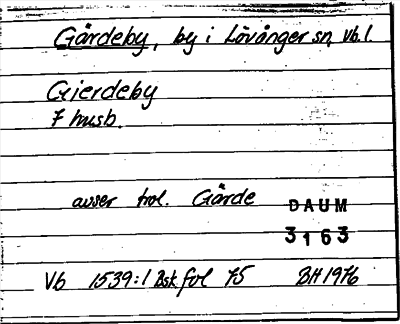 Gärdeby, by i Lövånger sn, Vb.l.
Gierdeby
7 husb.
avser trol. Gärde
DAUM
3163
Vb 1539:1 Bsk fol 75 BH 1976